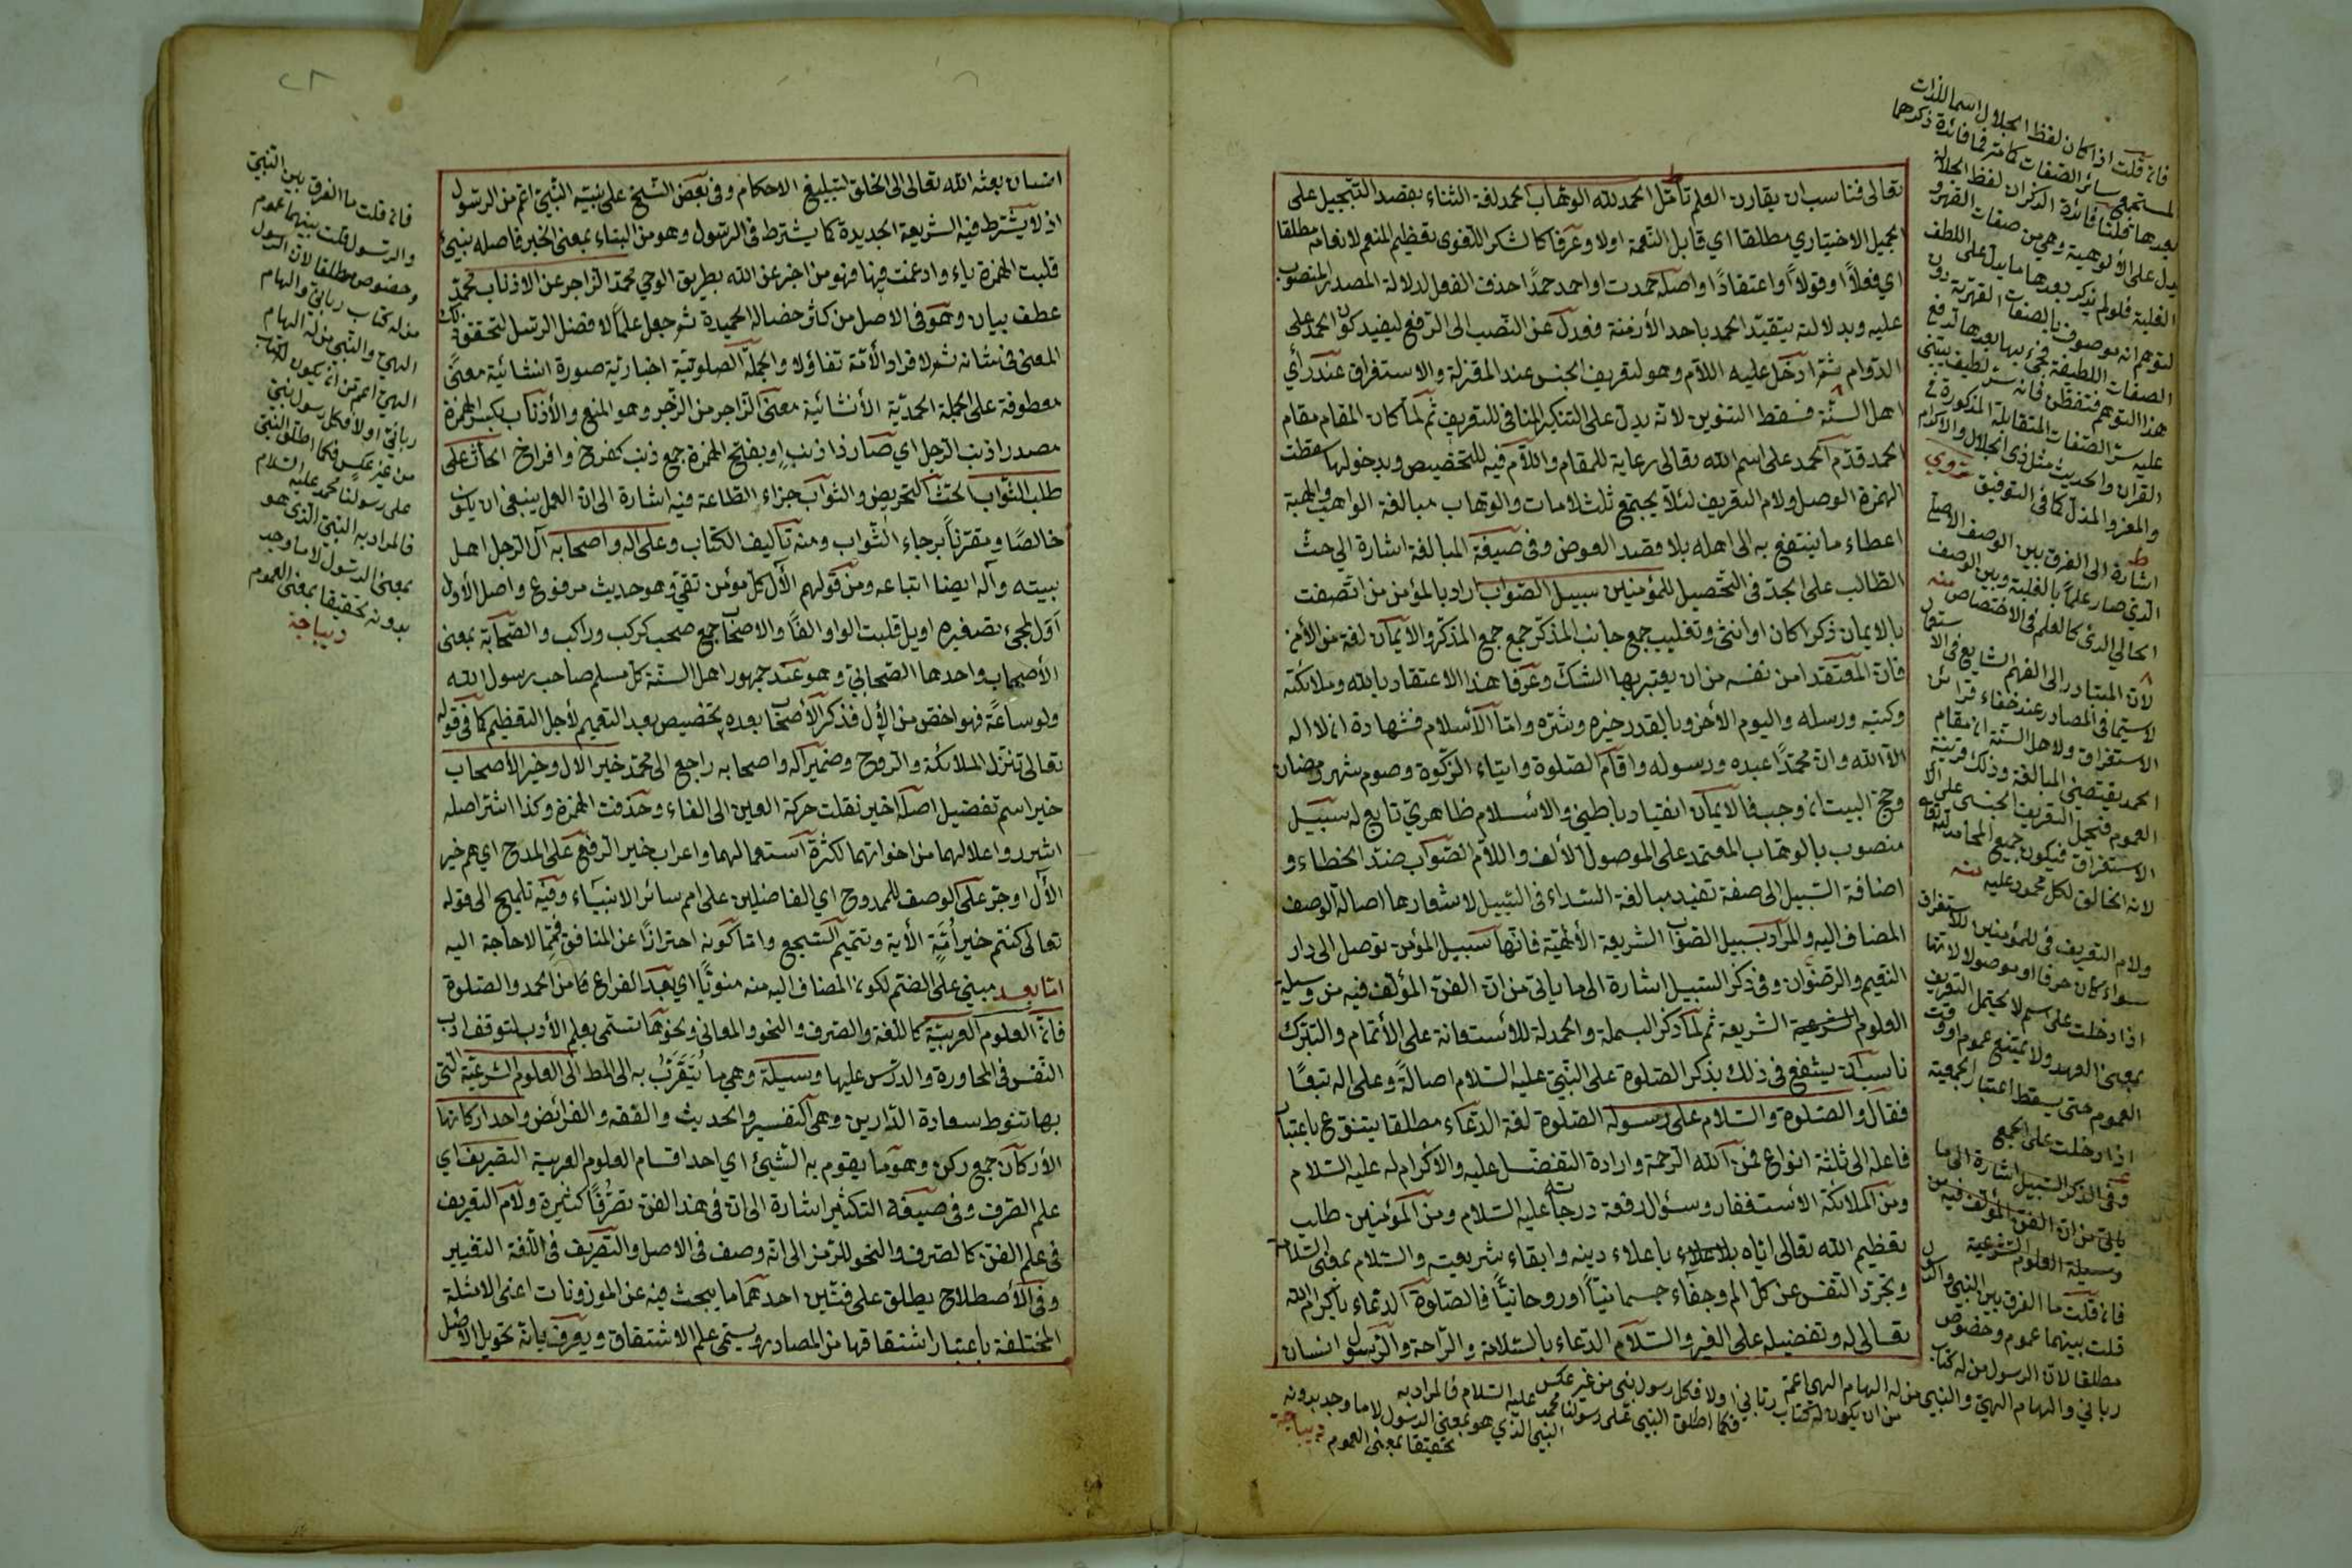 تعالى فناسب ان يقارن العلم تأمّل الحمد لله الوهّاب الحمد لغة الثناء بقصد التبجيل على
الجميل الاختياري مطلقا اي قابل النّعمة اولا وعرفا كالشكر اللغوى تعظيم المنعم لانعامه مطلقا
اي فعلاً او قولاً او اعتقادًا واصله حمدت او احمد حمدًا حذف الفعل لدلالة المصدر المنصوب
عليه وبدلالته يتقيّد الحمد باحد الأزمنة فعدل عن النّصب الى الرّفع ليفيد كون الحمد على
الدّوام ثمّ ادخل عليه اللّام وهو لتعريف الجنس عند المعتزلة والاستغراق عند رأي
اهل السنّة فسقط التنوين لانّه يدلّ على التنكير المنافى للتعريف ثم لمّا كان المقام مقام
الحمد قدّم الحمد على اسم الله تعالى رعاية للمقام واللّام فيه للتخصيص وبدخولها سقطت
الهمزة الوصل ولام التعريف لئلّا يجتمع ثلث لامات والوهاب مبالغة الواهب والهبة
اعطاء ما ينتفع به الى اهله بلا قصد العوض وفى صيغة المبالغة اشارة الى حثّ
الطالب على الجدّ فى التحصيل للمؤمنين سبيل الصّواب اراد بالمؤمن من اتّصفت
بالايمان ذكرا كان او انثى وتغليب جمع جانب المذكّر جمع جمع المذكّر والايمان لغة من الأمن
فانّ المعتقد امن نفسه من ان يعتبر بها الشكّ وعرفا هذا الاعتقاد بالله وملائكته
وكتبه ورسله واليوم الأخر وبالقدر خيره وشرّه وامّا الأسلام فشهادة ان لا اله
الّا الله وانّ محمّدًا عبده ورسوله واقام الصّلوة وايتاء الزكوة وصوم شهر رمضان
وحجّ البيت ان وجب فالايمان انقياد باطنى والاسلام ظاهريّ تابع له سبيل
منصوب بالوهّاب المعتمد على الموصول الألف واللّام الصّواب ضدّ الخطاء و
اضافة السّبيل الى صفة تفيد مبالغة السّداء فى السّبيل لاشعارها اصالة الوصف
المضاف اليه والمراد بسبيل الصّواب الشريعة الألهيّة فانّها سبيل المؤمن توصل الى دار
النعيم والرّضوان وفى ذكر السّبيل اشارة الى ما يأتى من انّ الفنّ المؤلّف فيه من وسيلة
العلوم الشرعية الشريعة ثم لمّا ذكر البسملة والحمدلة للأستعانة على الأتمام والتبرّك
ناسب ان يشفع فى ذلك بذكر الصّلوة على النّبىّ عليه السّلام اصالةً وعلى اله تبعًا
فقال والصّلوة والسّلام على رسوله الصّلوة لغة الدّعاء مطلقا يتنوّع باعتبار
فاعله الى ثلثة انواع فمن الله الرّحمة وارادة التفضّل عليه والاكرام له عليه السّلام
ومن الملائكة الاستغفار وسؤال رفعة درجاته عليه السّلام ومن المؤمنين طلب
تعظيم الله تعالى ايّاه باعلاء دينه وابقاء شريعته والسّلام بمعنى السّلامة
وتجرّد النّفس عن كلّ الم وجفاء جسمانيّاً او روحانيّاً فالصّلوة الدّعاء باكرام الله
تعالى له وتفضيله على الغير والسّلام الدّعاء بالسّلامة والرّاحة والرّسول انسان
فان قلت اذا كان لفظ الجلال اسما للذّات
المستجمع سائر الصّفات كما مرّ فما فائدة ذكرها
بعدها قلنا فائدة الذكر ان لفظ الجلالة
يدل على الألوهية وهى من صفات القهر و
الغلبة فلو لم يذكر بعدها ما يدلّ على اللطف
لتوهّم انه موصوف بالصفات القهرية دون
الصفات اللطيفة فجئ بها بعدها لدفع
هذا التوهم فتفطّن فانه سرّ لطيف يبتنى
عليه سرّ الصّفات المتقابلة المذكورة فى
القرآن والحديث مثل ذى الجلال والاكرام
والمعزّ والمذلّ كما فى التوفيق
اشارة الى الفرق بين الوصف الاصلى
الّذى صار علمًا بالغلبة وبين الوصف
الحالي الّذى كالعلم فى الاختصاص منه
لانّ المتبادر الى الفهم الشايع فى الاستعمال
لا سيّما فى المصادر عند خفاء قرائن
الاستغراق ولاهل السنّة ان مقام
الحمد يقتضى المبالغة وذلك قرينة
العموم فيحمل التعريف الجنسى على
الاستغراق فيكون جميع المحامد لله تعالى
لانه الخالق لكل محمود عليه منه
ولام التعريف فى للمؤمنين للاستغراق
سواء كان حرفا او موصولا لانّها
اذا دخلت على اسم لا يحتمل التعريف
بمعنى العهد ولا يمتنع عموم
العموم حتى يسقط اعتبار الجمعية
اذا دخلت على الجمع
وفى الذكر السّبيل اشارة الى ما
يأتى من انّ الفنّ المؤلّف فيه من
وسيلة العلوم الشرعية
فان قلت ما الفرق بين النبى والرّسول
قلت بينهما عموم وخصوص
مطلقا لانّ الرسول من له كتاب
ربانىّ والهام الهىّ والنبى من له الهام الهى اعمّ
من ان يكون له كتاب ربانى اولا فكل رسول نبى من غير عكس
فكما اطلق النبى على رسولنا محمد عليه السّلام فالمراد به
النبى الّذى هو بمعنى الرسول لا ما وجد بدونه
تحقيقا بمعنى العموم ديباجة
انسان بعثه الله تعالى الى الخلق لتبليغ الاحكام وفى بعض النّسخ على نبيّه النّبىّ اعمّ من الرسول
اذ لا يشترط فيه الشريعة الجديدة كما يشترط فى الرّسول وهو من النبأ بمعنى الخبر فاصله نبيئ
قلبت الهمزة ياء وادغمت فيها فهو من اخبر عن الله بطريق الوحى محمّد الزّاجر عن الاذناب محمّد
عطف بيان وهو فى الاصل من كاثر خصاله الحميدة ثم جعل علماً لافضل الرّسل لتحقّق ذلك
المعنى فى شانه ثم لافراد الأمّة تفاؤلا والجملة الصّلوتيّة اخباريّة صورة انشائية معنىً
معطوفة على الجملة الحمديّة الأنشائية معنى الزّاجر من الزّجر وهو المنع والأذناب بكسر الهمزة
مصدر اذنب الرّجل اي صار ذا ذنبٍ او بفتح الهمزة جمع ذنب كفرخ وافراخ الحاثّ على
طلب الثّواب الحثّ التّحريض والثّواب جزاء الطّاعة فيه اشارة الى انّ العمل ينبغى ان يكون
خالصًا ومقترناً برجاء الثّواب ومنه تأليف الكتاب وعلى اله واصحابه آل الرّجل اهل
بيته وآله ايضا اتباعه ومن قولهم الأل كلّ مؤمن تقىّ وهو حديث مرفوع واصل الأول
اول لمجئ تصغيره اويل قلبت الواو الفاً والاصحاب جمع صحب كركب وراكب والصّحابة بمعنى
الأصحاب واحدها الصّحابىّ وهو عند جمهور اهل السّنّة كلّ مسلم صاحب رسول الله
ولو ساعةً فهو اخصّ من الأول فذكر الأصحاب بعده تخصيص بعد التعميم لأجل التعظيم كما فى قوله
تعالى تنزّل الملائكة والرّوح وضمير آله واصحابه راجع الى محمّد خير الال وخير الأصحاب
خير اسم تفضيل اصله اخير نقلت حركة العين الى الفاء وحذفت الهمزة وكذا اشرّ اصله
اشرر واعلالهما من اخواتهما لكثرة استعمالهما واعراب خير الرّفع على المدح اي هم خير
الأل او جرّ على الوصف للممدوح اي الفاضلين على امم سائر الانبياء وفيه تلميح الى قوله
تعالى كنتم خير اُمّةٍ الأية وتتميم السّجع وامّا كونه احترازًا عن المنافق فممّا لا حاجة اليه
امّا بعد مبنىّ على الضّمّ لكون المضاف اليه منه منويًّا اي بعد الفراغ من الحمد والصّلوة
فانّ العلوم العربيّة كاللّغة والصّرف والنّحو والمعانى ونحوها تسمّى بعلم الأدب لتوقف ادب
النّفس فى المحاورة والدّرس عليها وسيلة وهى ما يُتَقَرَّبُ به الى المطلب الى العلوم الشرعيّة الّتى
بها تنوط سعادة الدّارين وهى التفسير والحديث والفقه والفرائض واحد اركانها
الأركان جمع ركن وهو ما يقوم به الشّيئ اي احد اقسام العلوم العربية التّصريف اي
علم الصّرف وفى صيغة التّكثير اشارة الى انّ فى هذا الفنّ تصرّفًا كثيرة ولام التعريف
فى علم الفنّ كالصّرف والنحو للرّمز الى انّه وصف فى الاصل والتّصريف فى اللّغة التغيير
وفى الأصطلاح يطلق على فنّين احدهما ما يبحث فيه عن الموزونات اعنى الامثلة
المختلفة باعتبار اشتقاقها من المصادر ويسمّى علم الاشتقاق ويعرف بانّه تحويل الأصل
فان قلت ما الفرق بين النّبىّ
والرّسول قلت بينهما عموم
وخصوص مطلقا لانّ الرّسول
من له كتاب ربانىّ والهام
الهىّ والنّبى من له الهام
الهىّ اعمّ من ان يكون له كتاب
ربانىّ اولا فكل رسول نبىّ
من غير عكس فكما اطلق النّبىّ
على رسولنا محمد عليه السّلام
فالمراد به النّبىّ الّذى هو
بمعنى الرّسول لا ما وجد
بدونه تحقيقا بمعنى العموم
ديباجة